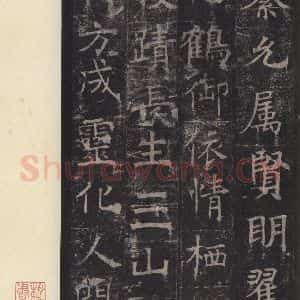 允属賢明
鶴御依情栖
蹟長生三山
方成靈化人
Shufawang.CN